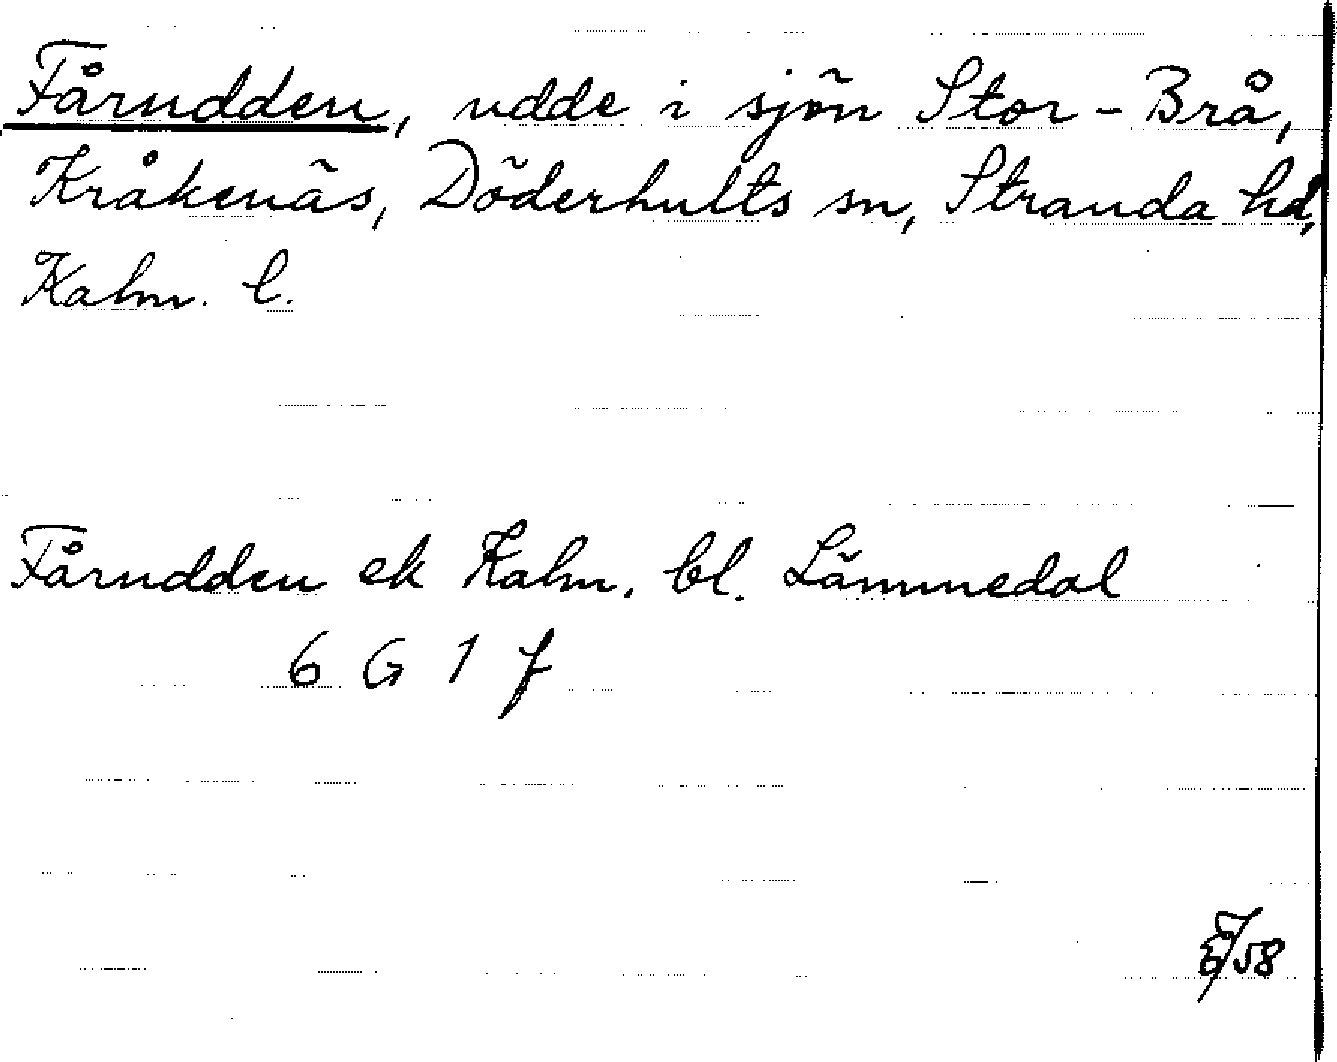 Fårudden, udde i sjön Stor-Brå,
Kråkenäs, Döderhults sn, Stranda hd,
Kalm. l.
Fårudden ek Kalm. bl. Lämmedal
6 G 1 f